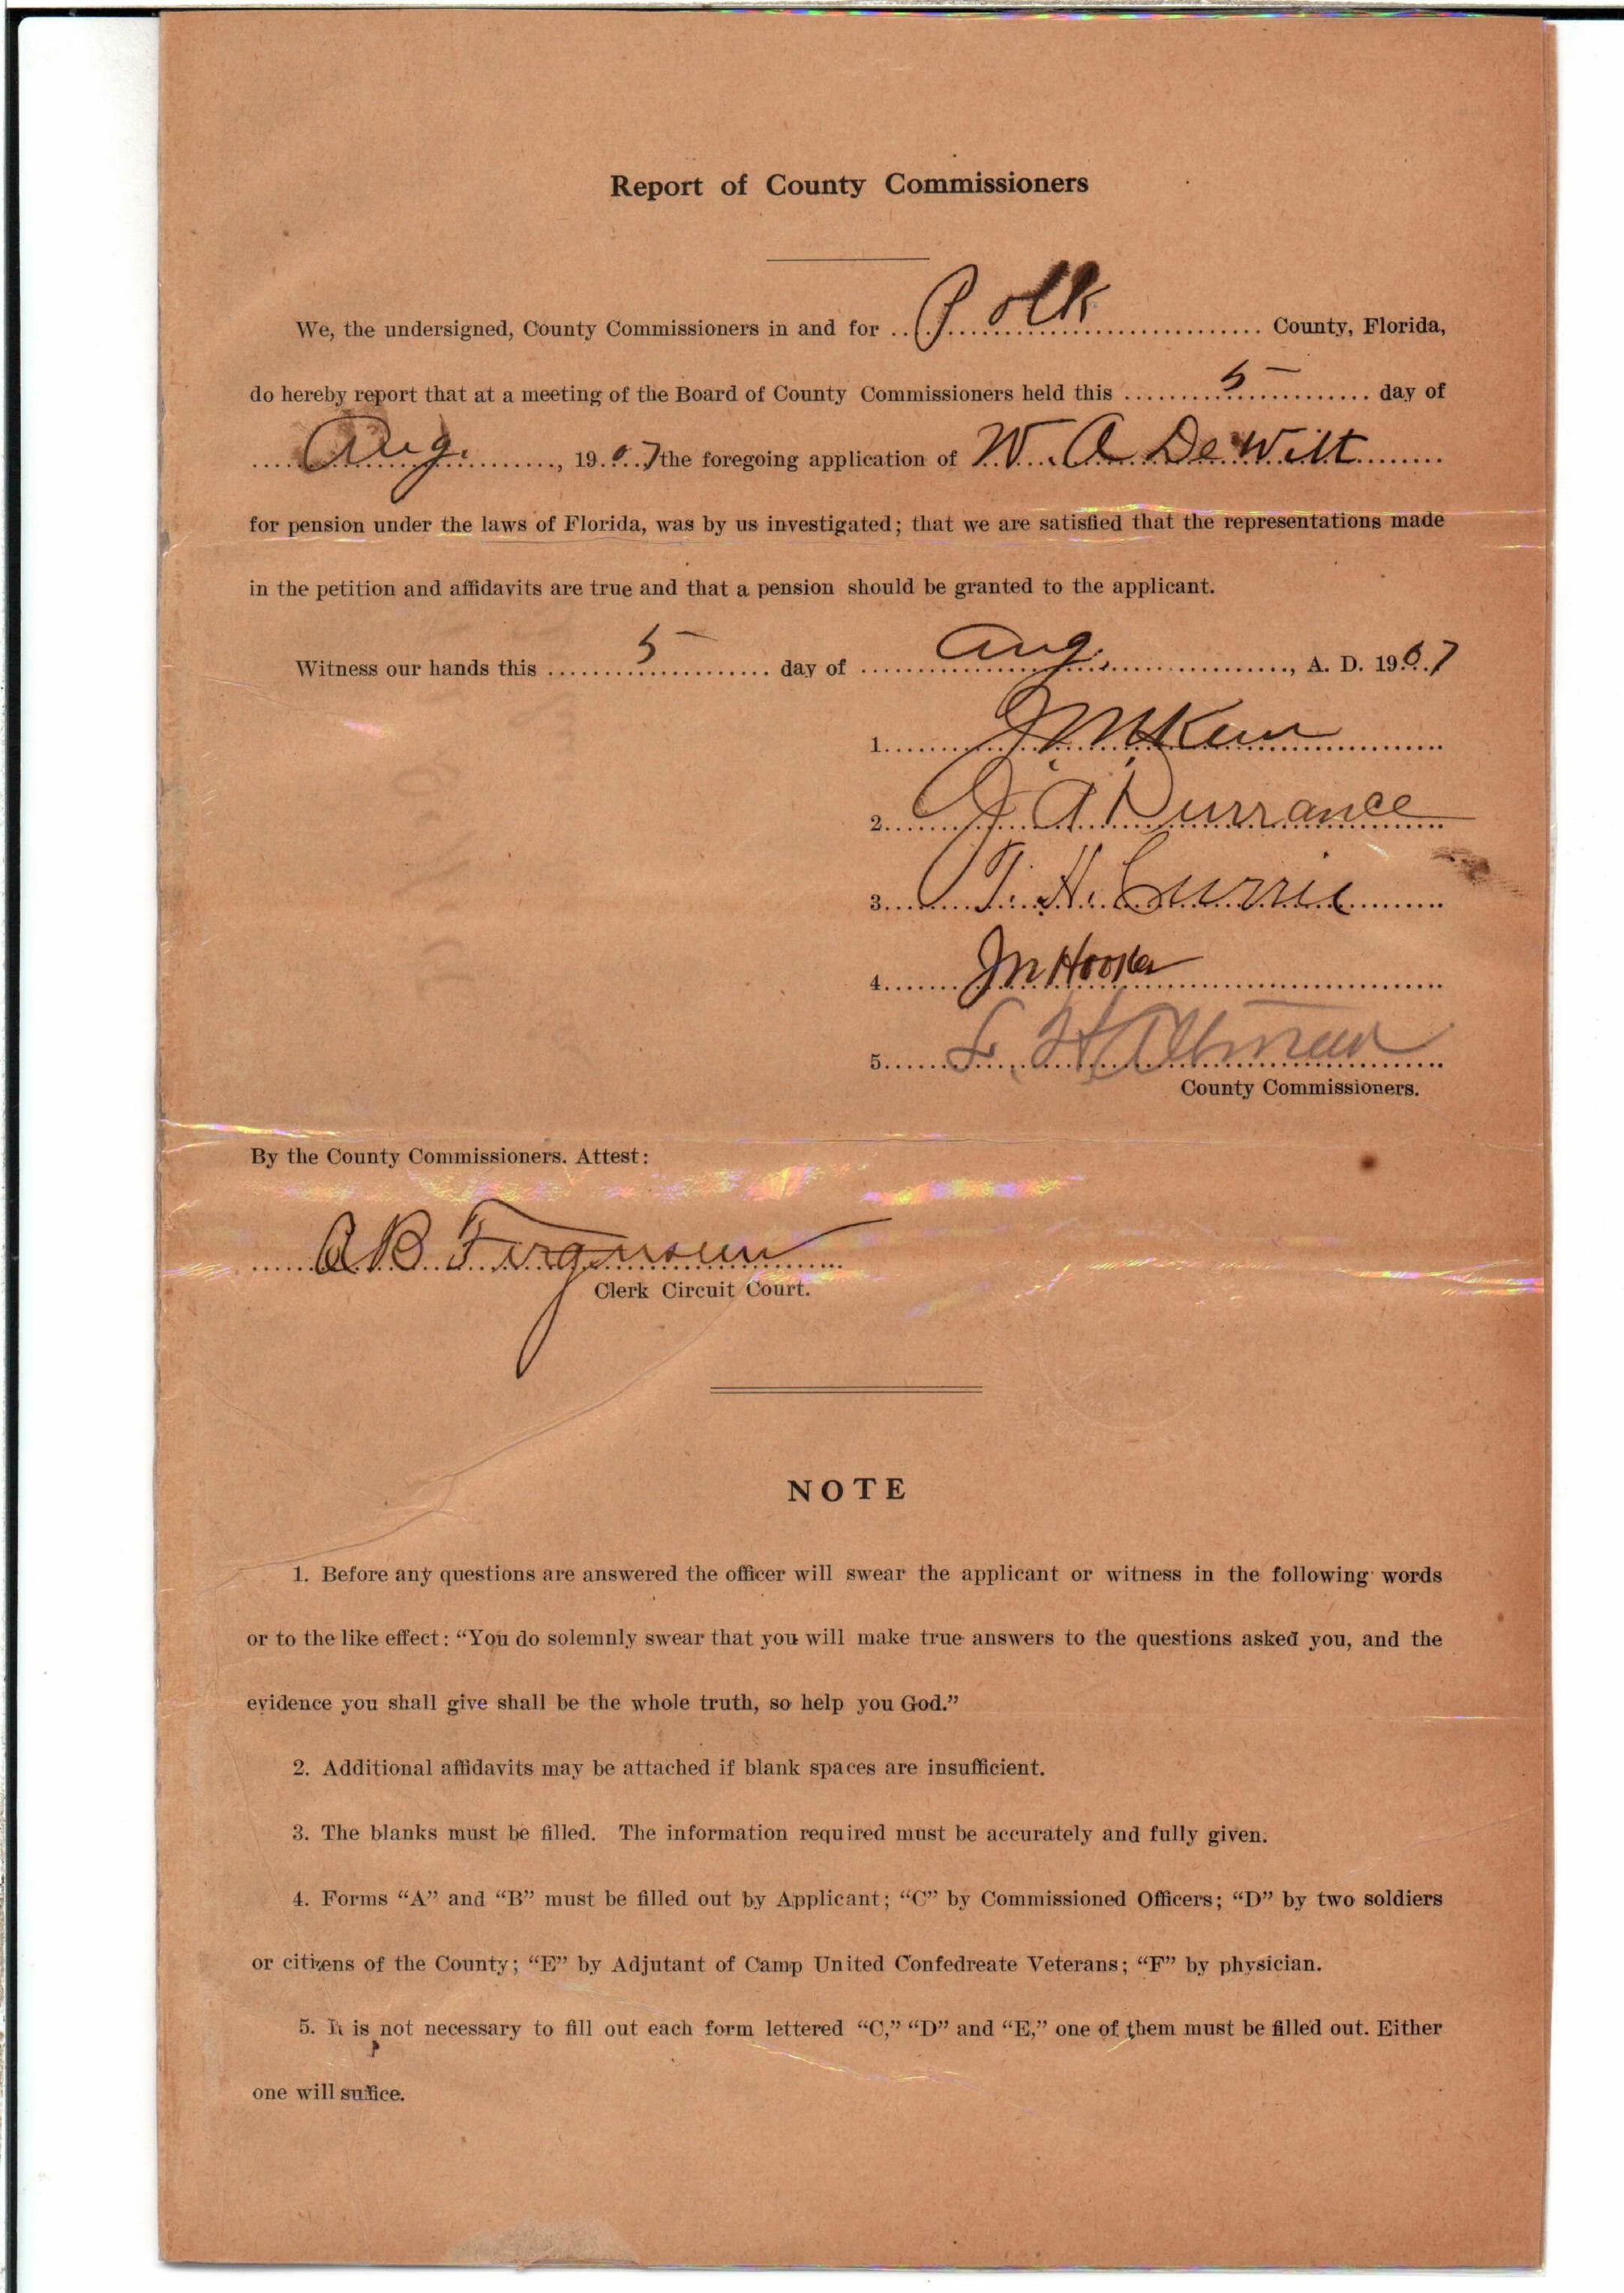 Report of County Commissioners
We, the undersigned, County Commissioners in and for Polk County, Florida,
do hereby report that at a meeting of the Board of County Commissioners held this 5 day of
Aug., 1907 the foregoing application of W. A. DeWitt
for pension under the laws of Florida, was by us investigated; that we are satisfied that the representations made
in the petition and affidavits are true and that a pension should be granted to the applicant.
Witness our hands this 5 day of Aug., A. D. 1907
1.
2. J. A. Durrance
3. T. H. Currie
4. J M Hooker
5.
County Commissioners.
By the County Commissioners. Attest:
A B Ferguson
Clerk Circuit Court.
NOTE
1. Before any questions are answered the officer will swear the applicant or witness in the following words
or to the like effect: “You do solemnly swear that you will make true answers to the questions asked you, and the
evidence you shall give shall be the whole truth, so help you God.”
2. Additional affidavits may be attached if blank spaces are insufficient.
3. The blanks must be filled. The information required must be accurately and fully given.
4. Forms “A” and “B” must be filled out by Applicant; “C” by Commissioned Officers; “D” by two soldiers
or citizens of the County; “E” by Adjutant of Camp United Confedreate Veterans; “F” by physician.
5. It is not necessary to fill out each form lettered “C,” “D” and “E,” one of them must be filled out. Either
one will suffice.